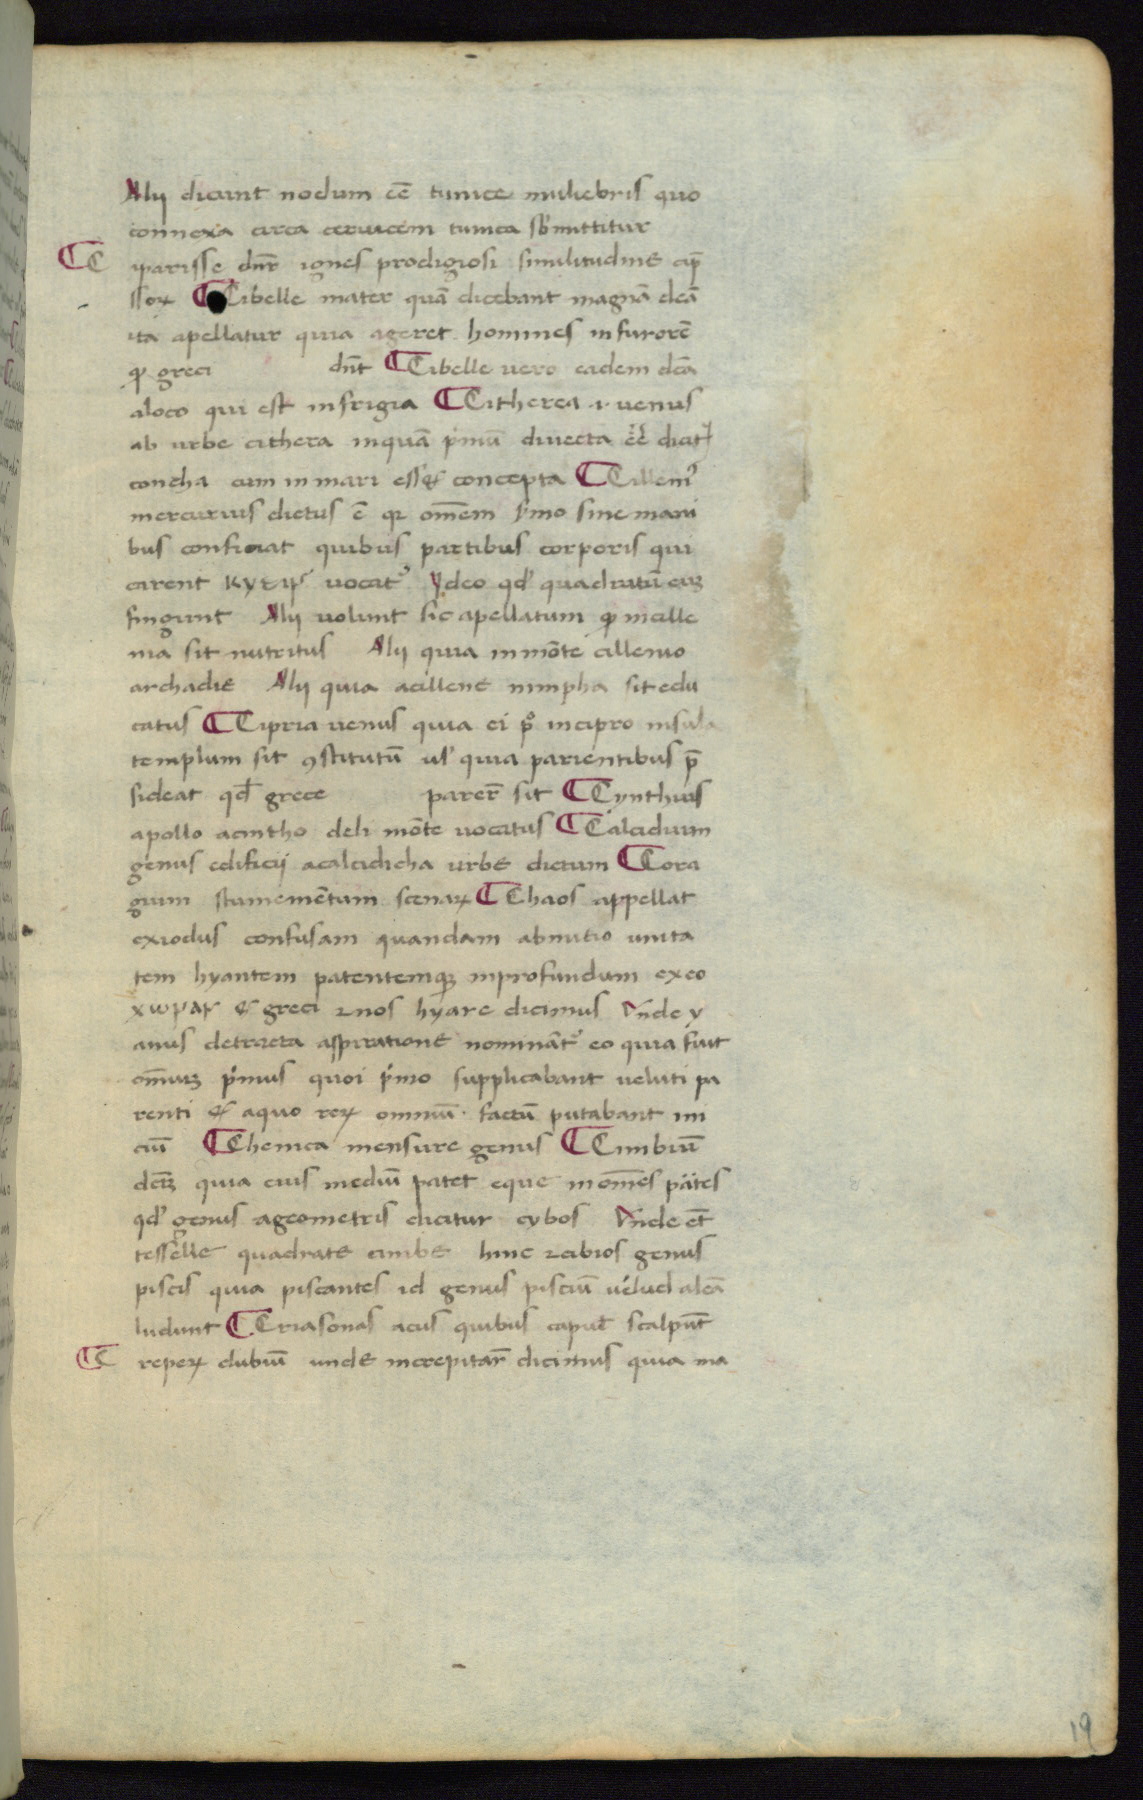 Alij dicunt nodum eē tunice muliebris quo
connexa circa ceruicem tunica sbmittitur
C iparisse dnr ignes prodigiosi similitudine cip̄
ssoꝝ Cibelle mater quā dicebant magnā deā
ita apellatur quia ageret homines in furorē
greci dnt Cibelle vero eadem dea
aloco qui est infrigia Citherea .i. venus
ab urbe cithera inquā pmū divecta eē dicit
concha cum in mari esset concepta Cillenius
mercurius dictus ē omēm pmo sine mani
bus conficiat quibus partibus corporis qui
carent vocat Ydeo qd quadratū
fingunt Alij volunt sic apellatum incille
nia sit nutritus Alij quia in mōte cillenio
archadie Alij quia acillene nimpha sit edu
catus Cipria venus quia ei pº incipro insula
templum sit ꝯstitutū ul quia parientibus p̄
sideat qd grece parer̄ sit Cynthius
apollo acintho deli mōte vocatus Calcidium
genus edificij acalcidicha urbe dictum Cora
gium stumemētum scenaꝝ Chaos appellat
exiodus confusam quandam abinitio unita
tem hyantem patentemqꝫ inprofundum exeo
xωραρ et greci nos hyare dicimus Vnde y
anus detracta aspiratione nominat eo quia fuit
pmus quoi pmo supplicabant veluti pa
renti et aquo reꝝ omniū factū putabant ini
ciū Chenica mensure genus Cimbiū
quia eius mediū patet eque in omēs ptes
qd genus ageometris dicitur cybos Vnde et
tesselle quadrate cimbe hinc cibios genus
piscis quia piscantes id genus pisciū velud aleā
ludunt Criasonas acus quibus caput scalpūt
C repeꝝ dubiū unde increpitar̄ dicimus quia ma
19